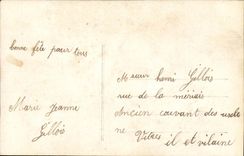 bonne fête pour tous
Marie Jeanne
Gillois
M Henri Gillois
rue de la mériais
Ancien couvant des
ne Vitré il et vilaine